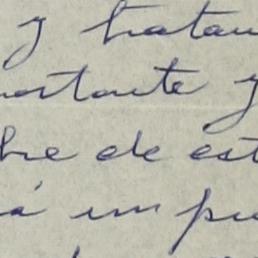 y tratan
ortante y
bre de est
á un pu